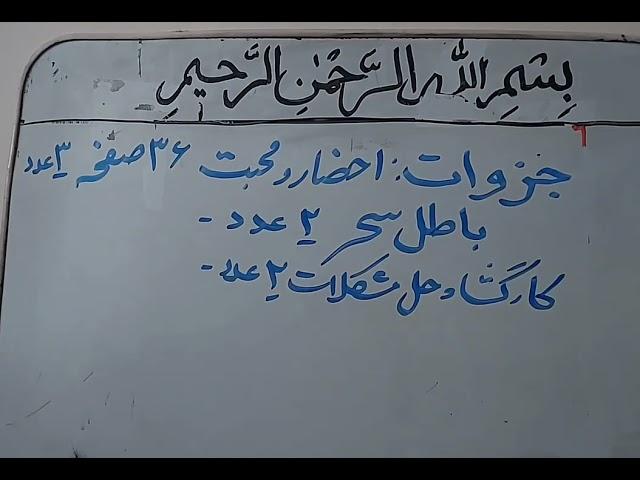 بِسْمِ اللّٰهِ الرَّحْمٰنِ الرَّحيمِ
جزوات: احضار و محبت ۳۶ صفحه ۳ عدد
باطل سحر ۲ عدد -
کارگشا و حل مشکلات ۲ عدد -